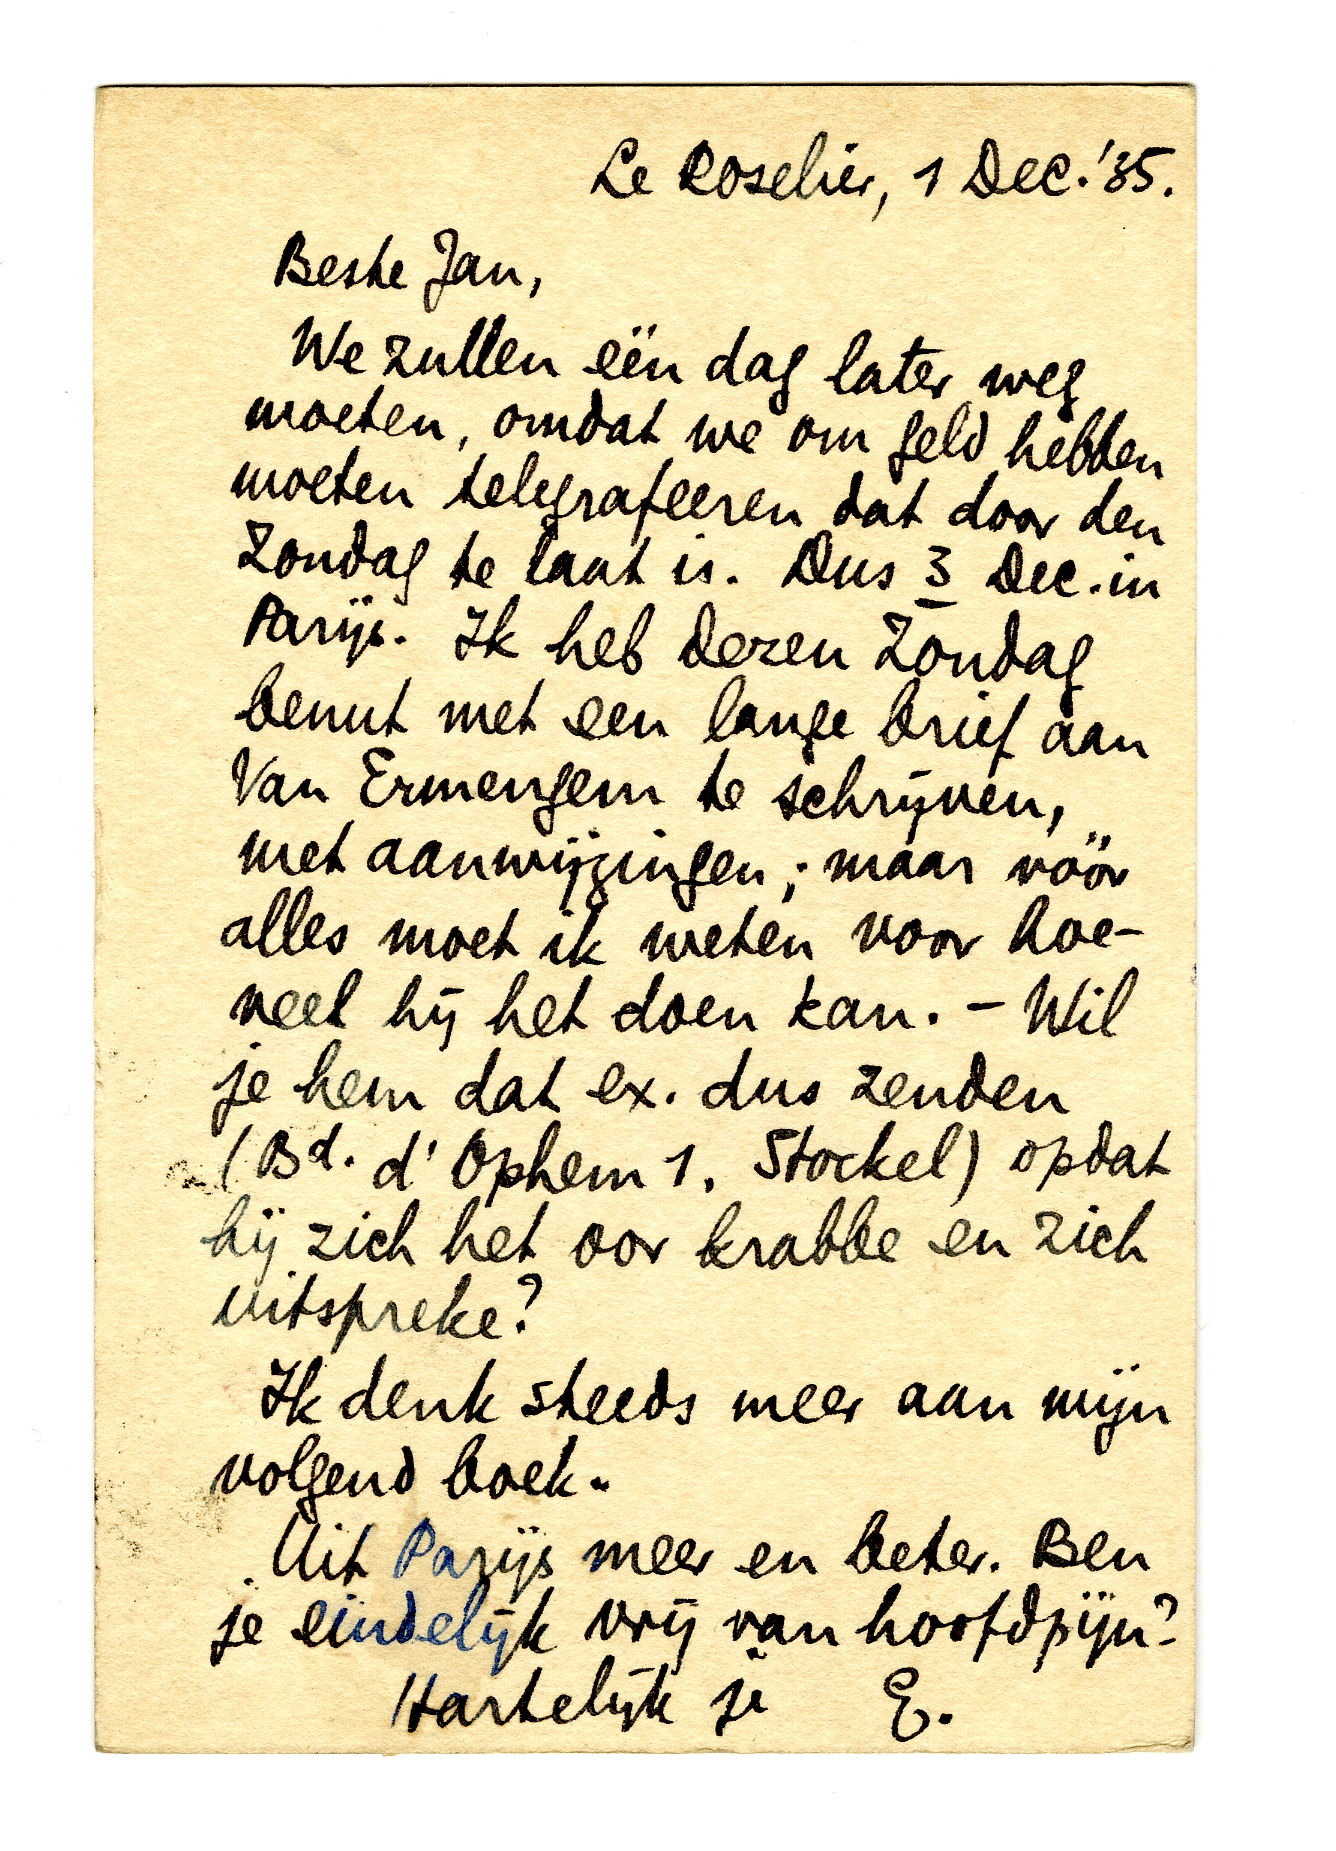 Le Roselier, 1 Dec. '35.
Beste Jan,
We zullen ëën dag later weg
moeten, omdat we om geld hebben
moeten telegrafeeren dat door den
Zondag te laat is. Dus 3 Dec. in
Parijs. Ik heb dezen Zondag
benut met een lange brief aan
Van Ermengem te schrijven,
met aanwijzingen; maar vöör
alles moet ik weten voor hoe-
veel hij het doen kan. – Wil
je hem dat ex. dus zenden
(Bd. d'Ophem 1, Stockel) opdat
hij zich het oor krabbe en zich
uitspreke?
Ik denk steeds meer aan mijn
volgend boek.
Uit Parijs meer en beter. Ben
je eindelijk vrij van hoofdpijn?
Hartelijk je E.